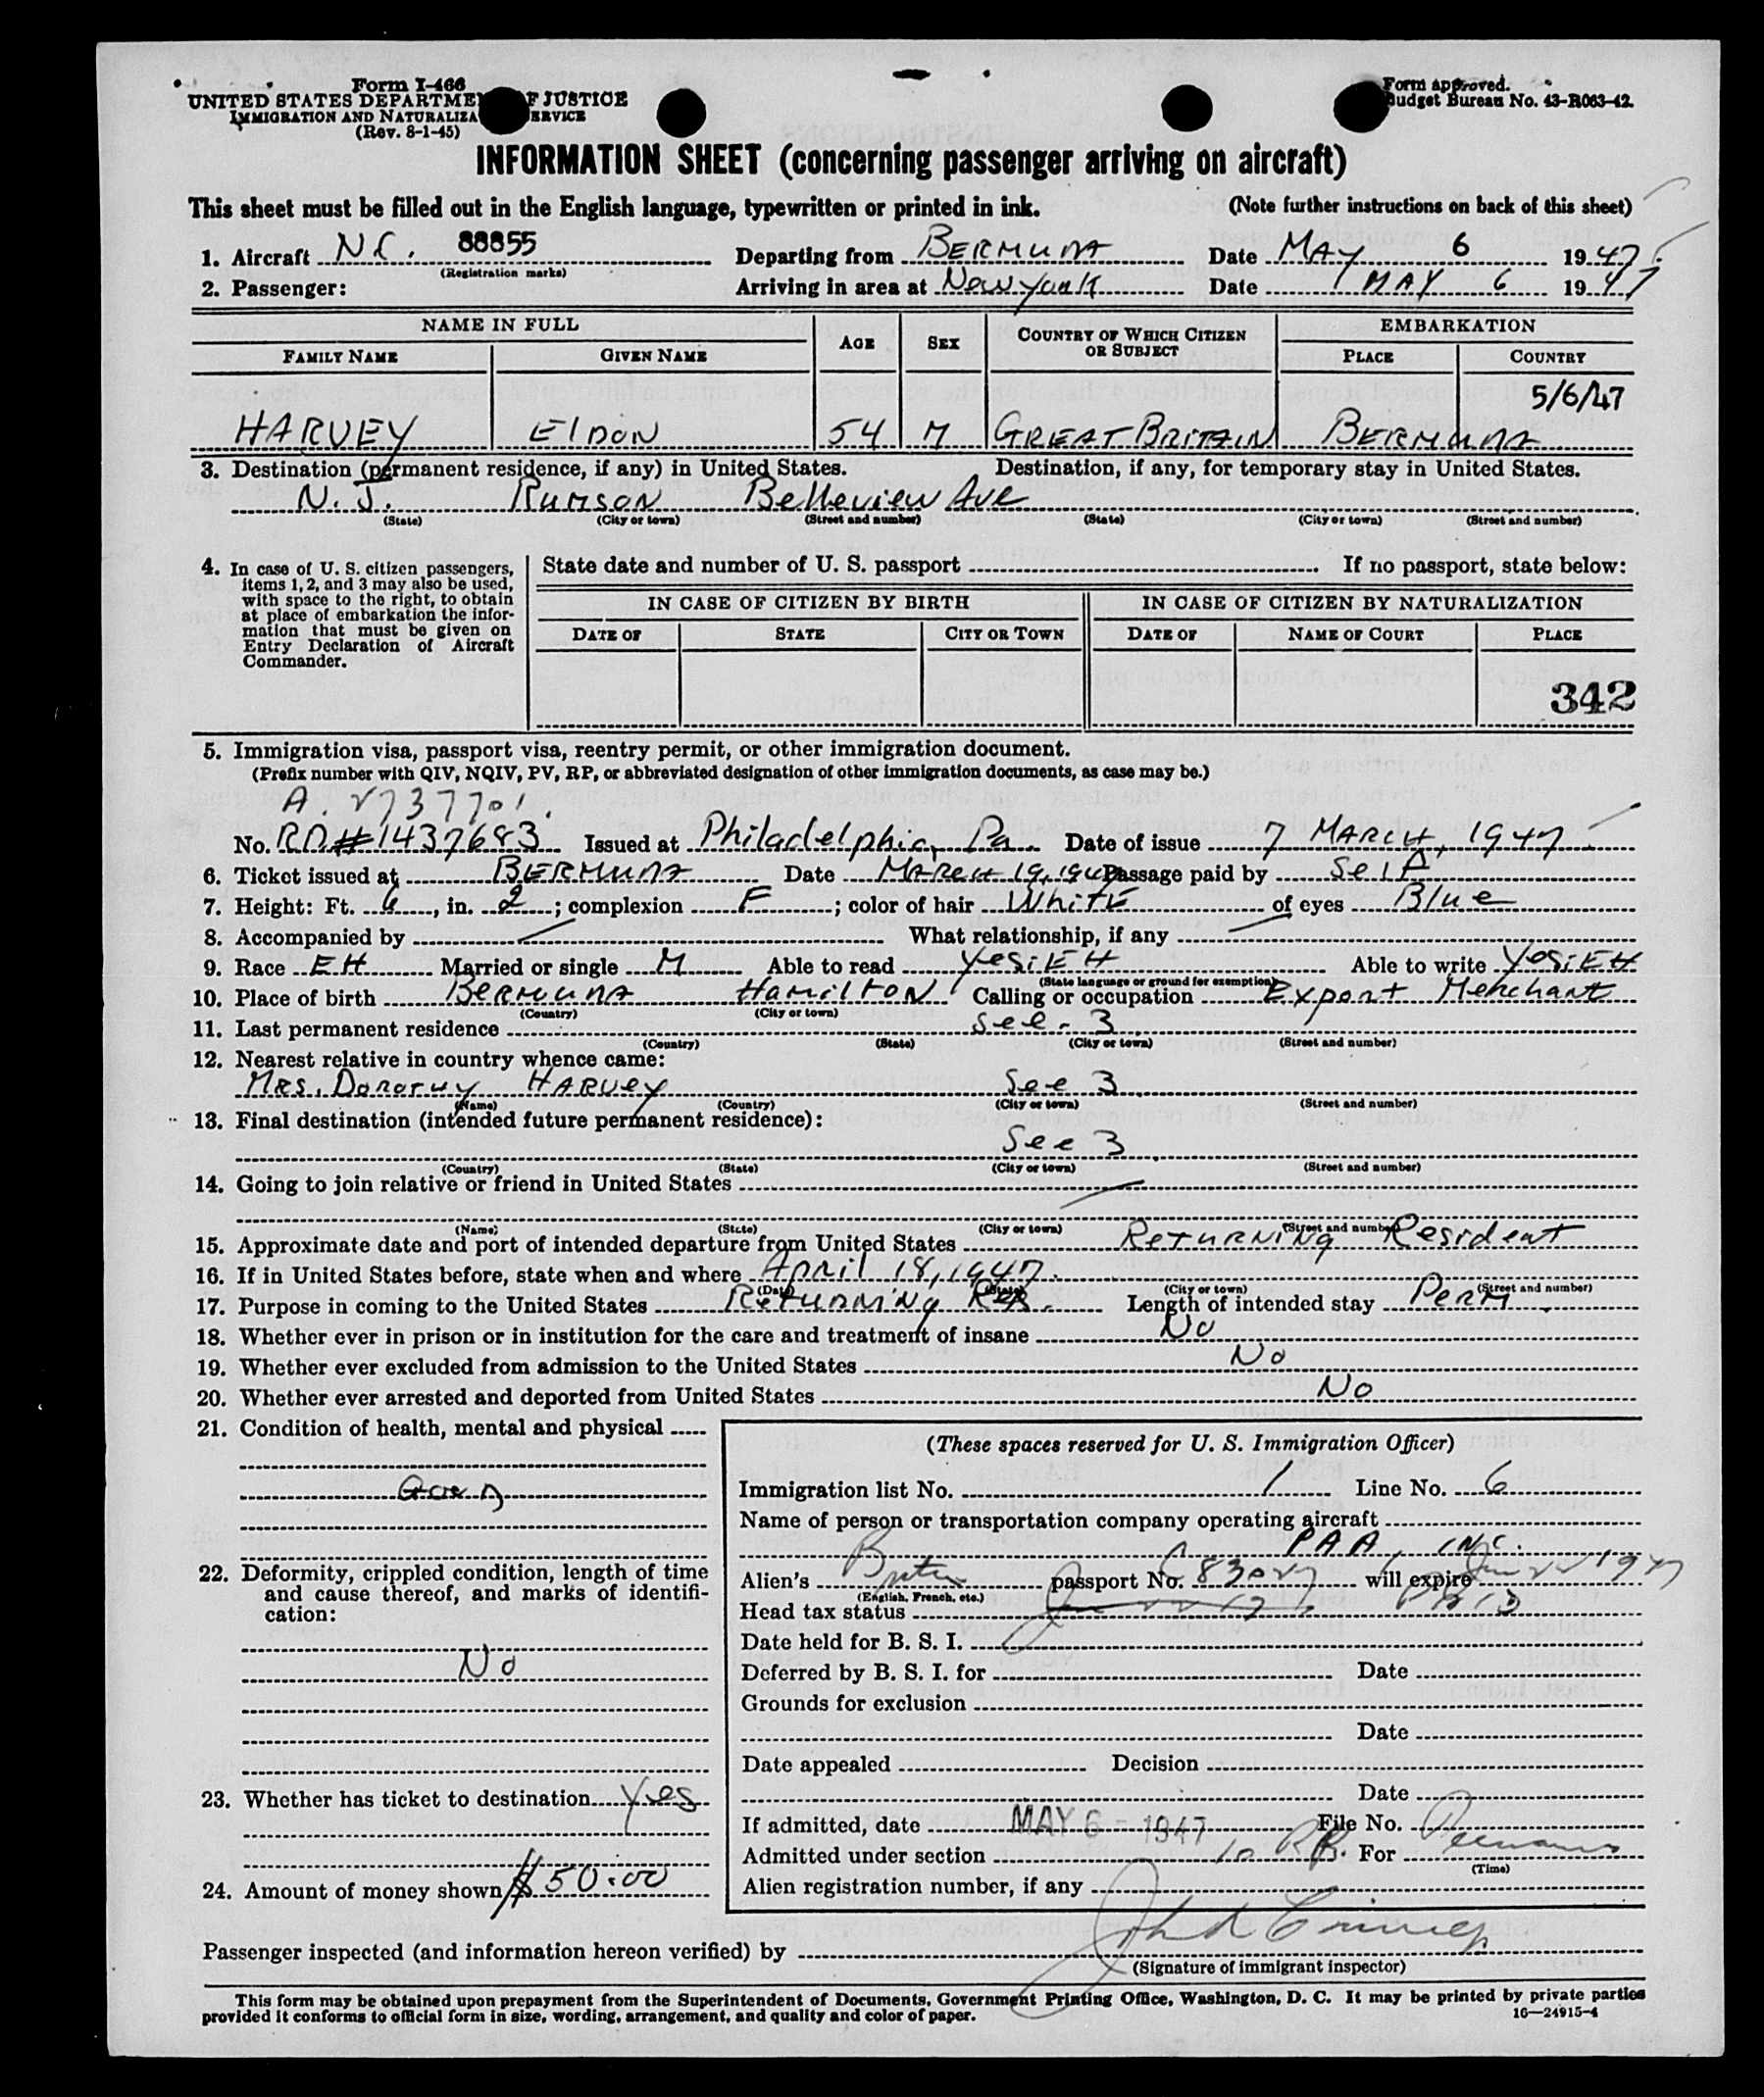 Form I-466
UNITED STATES DEPARTME F JUSTICE
IMMIGRATION AND NATURALIZA ERVICE
(Rev. 8-1-45)
Form approved.
Budget Bureau No. 43-R063-42.
INFORMATION SHEET (concerning passenger arriving on aircraft)
This sheet must be filled out in the English language, typewritten or printed in ink. (Note further instructions on back of this sheet)
1. Aircraft NC. 88855 Departing from BERMUDA Date MAY 6 1947
(Registration marks)
2. Passenger: Arriving in area at New York Date MAY 6 1947
NAME IN FULL AGE SEX COUNTRY OF WHICH CITIZEN OR SUBJECT EMBARKATION
FAMILY NAME GIVEN NAME PLACE COUNTRY
5/6/47
HARVEY ElDON 54 M GREAT BRITAIN BERMUDA
3. Destination (permanent residence, if any) in United States. Destination, if any, for temporary stay in United States.
N.J. RUMSON Belleview Ave
(State) (City or town) (Street and number) (State) (City or town) (Street and number)
4. In case of U. S. citizen passengers, items 1, 2, and 3 may also be used, with space to the right, to obtain at place of embarkation the information that must be given on Entry Declaration of Aircraft Commander.
State date and number of U. S. passport If no passport, state below:
IN CASE OF CITIZEN BY BIRTH IN CASE OF CITIZEN BY NATURALIZATION
DATE OF STATE CITY OR TOWN DATE OF NAME OF COURT PLACE
342
5. Immigration visa, passport visa, reentry permit, or other immigration document.
(Prefix number with QIV, NQIV, PV, RP, or abbreviated designation of other immigration documents, as case may be.)
A.
No. 1437683 Issued at Philadelphia, Pa. Date of issue 7 MARCH, 1947
6. Ticket issued at BERMUDA Date MARCH 19, 1947 Passage paid by Self
7. Height: Ft. 6, in. 2; complexion F; color of hair WhiTE of eyes Blue
8. Accompanied by What relationship, if any
9. Race EH Married or single M Able to read YesiEH Able to write YesiEH
(State language or ground for exemption)
10. Place of birth BERMUDA HamilTON Calling or occupation Export Merchant
(Country) (City or town)
11. Last permanent residence See - 3
(Country) (State) (City or town) (Street and number)
12. Nearest relative in country whence came:
MRS. DOROTHY HARVEY See 3
(Name) (Country) (City or town) (Street and number)
13. Final destination (intended future permanent residence):
See 3
(Country) (State) (City or town) (Street and number)
14. Going to join relative or friend in United States
(Name) (State) (City or town) (Street and number)
15. Approximate date and port of intended departure from United States ReTURNiNg Resident
16. If in United States before, state when and where April 18, 1947.
(Date) (State) (City or town) (Street and number)
17. Purpose in coming to the United States ReTURNiNg Res. Length of intended stay PeRM.
18. Whether ever in prison or in institution for the care and treatment of insane No
19. Whether ever excluded from admission to the United States No
20. Whether ever arrested and deported from United States No
21. Condition of health, mental and physical
GOOD
22. Deformity, crippled condition, length of time and cause thereof, and marks of identification:
No
23. Whether has ticket to destination Yes
24. Amount of money shown $50.00
(These spaces reserved for U. S. Immigration Officer)
Immigration list No. 1 Line No. 6
Name of person or transportation company operating aircraft
PAA, INC.
Alien's passport No. will expire 1947
(English, French, etc.)
Head tax status
Date held for B. S. I.
Deferred by B. S. I. for Date
Grounds for exclusion
Date
Date appealed Decision
Date
If admitted, date MAY 6 - 1947 File No.
Admitted under section For
(Time)
Alien registration number, if any
Passenger inspected (and information hereon verified) by
(Signature of immigrant inspector)
This form may be obtained upon prepayment from the Superintendent of Documents, Government Printing Office, Washington, D. C. It may be printed by private parties
provided it conforms to official form in size, wording, arrangement, and quality and color of paper. 16—24915-4